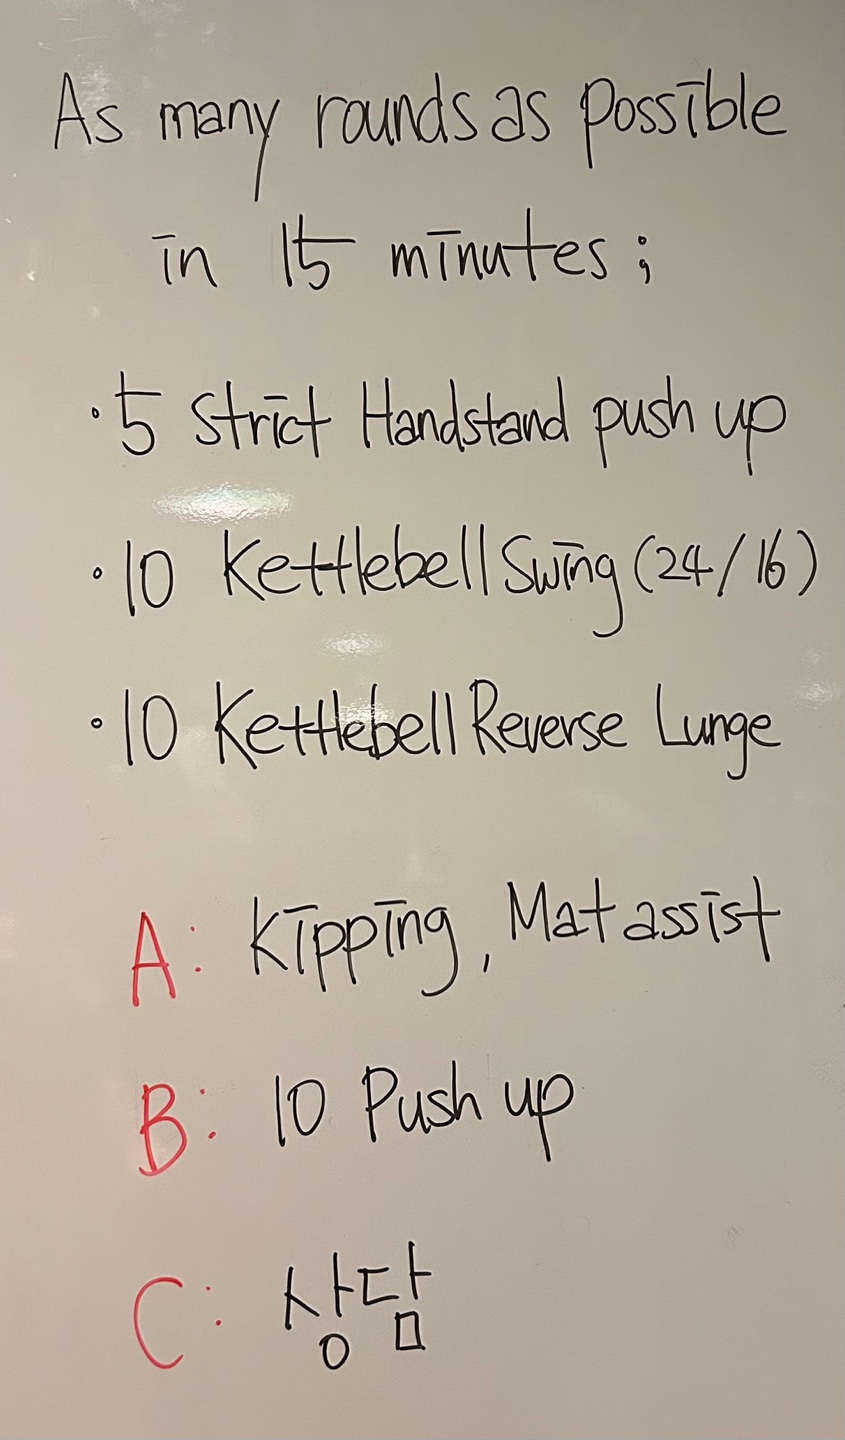 As many rounds as possible
in 15 minutes ;
· 5 Strict Handstand push up
· 10 Kettlebell Swing (24/16)
· 10 Kettlebell Reverse Lunge
A: Kipping, Mat assist
B: 10 Push up
C: 상담